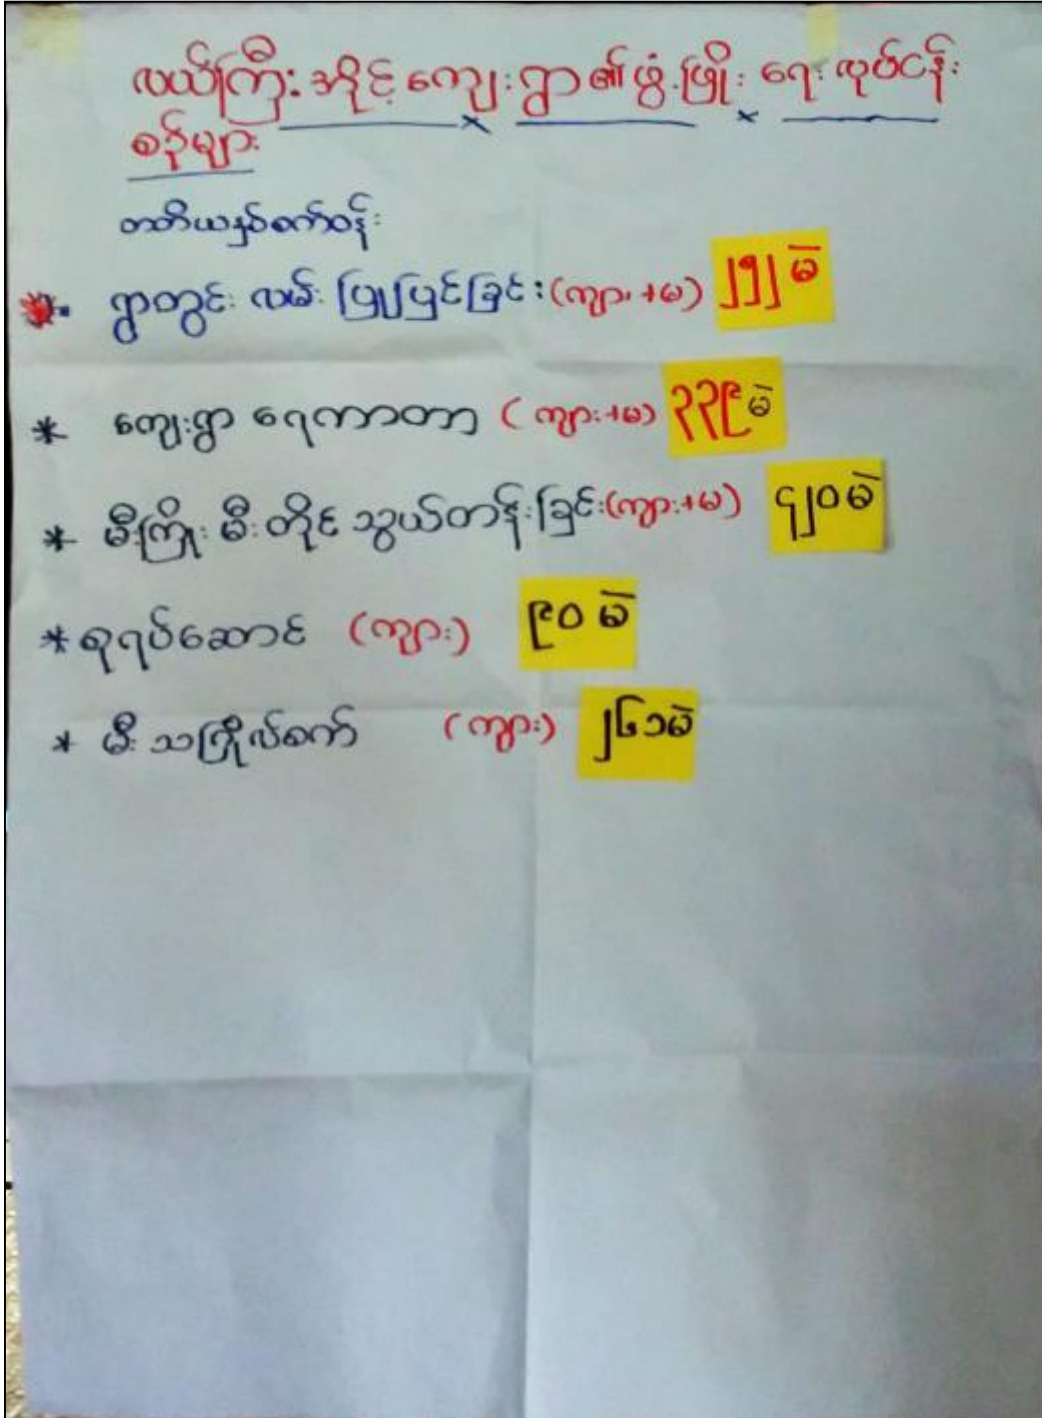 လယ်ကြီးအိုင့်ကျေးရွာ၏ဖွံ့ဖြိုးရေးလုပ်ငန်း
စဉ်များ
တတိယနှစ်စက်ဝန်း
ရွာတွင်းလမ်းပြုပြင်ခြင်း(ကျား+မ) ၂၅၂မဲ
* ကျေးရွာရေကာတာ (ကျား+မ) ၃၃၉မဲ
* မီးကြိုးမီးတိုင်သွယ်တန်းခြင်း(ကျား+မ) ၄၂၀မဲ
* စုရပ်ဆောင် (ကျား) ၉၀မဲ
* မီးသကြိုလ်စက် (ကျား) ၂၆၁မဲ